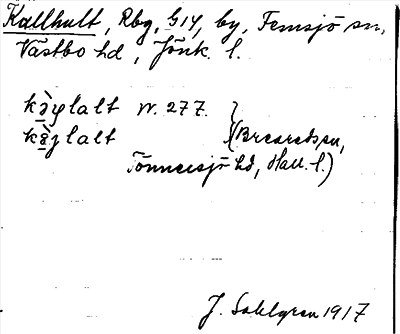 Kallhult, Rbg, G14, by, Femsjö sn,
Västbo hd, Jönk. l.
W. 277. }
} (Breared sn,
Tönnersjö hd, Hall. l.)
J. Sahlgren 1917